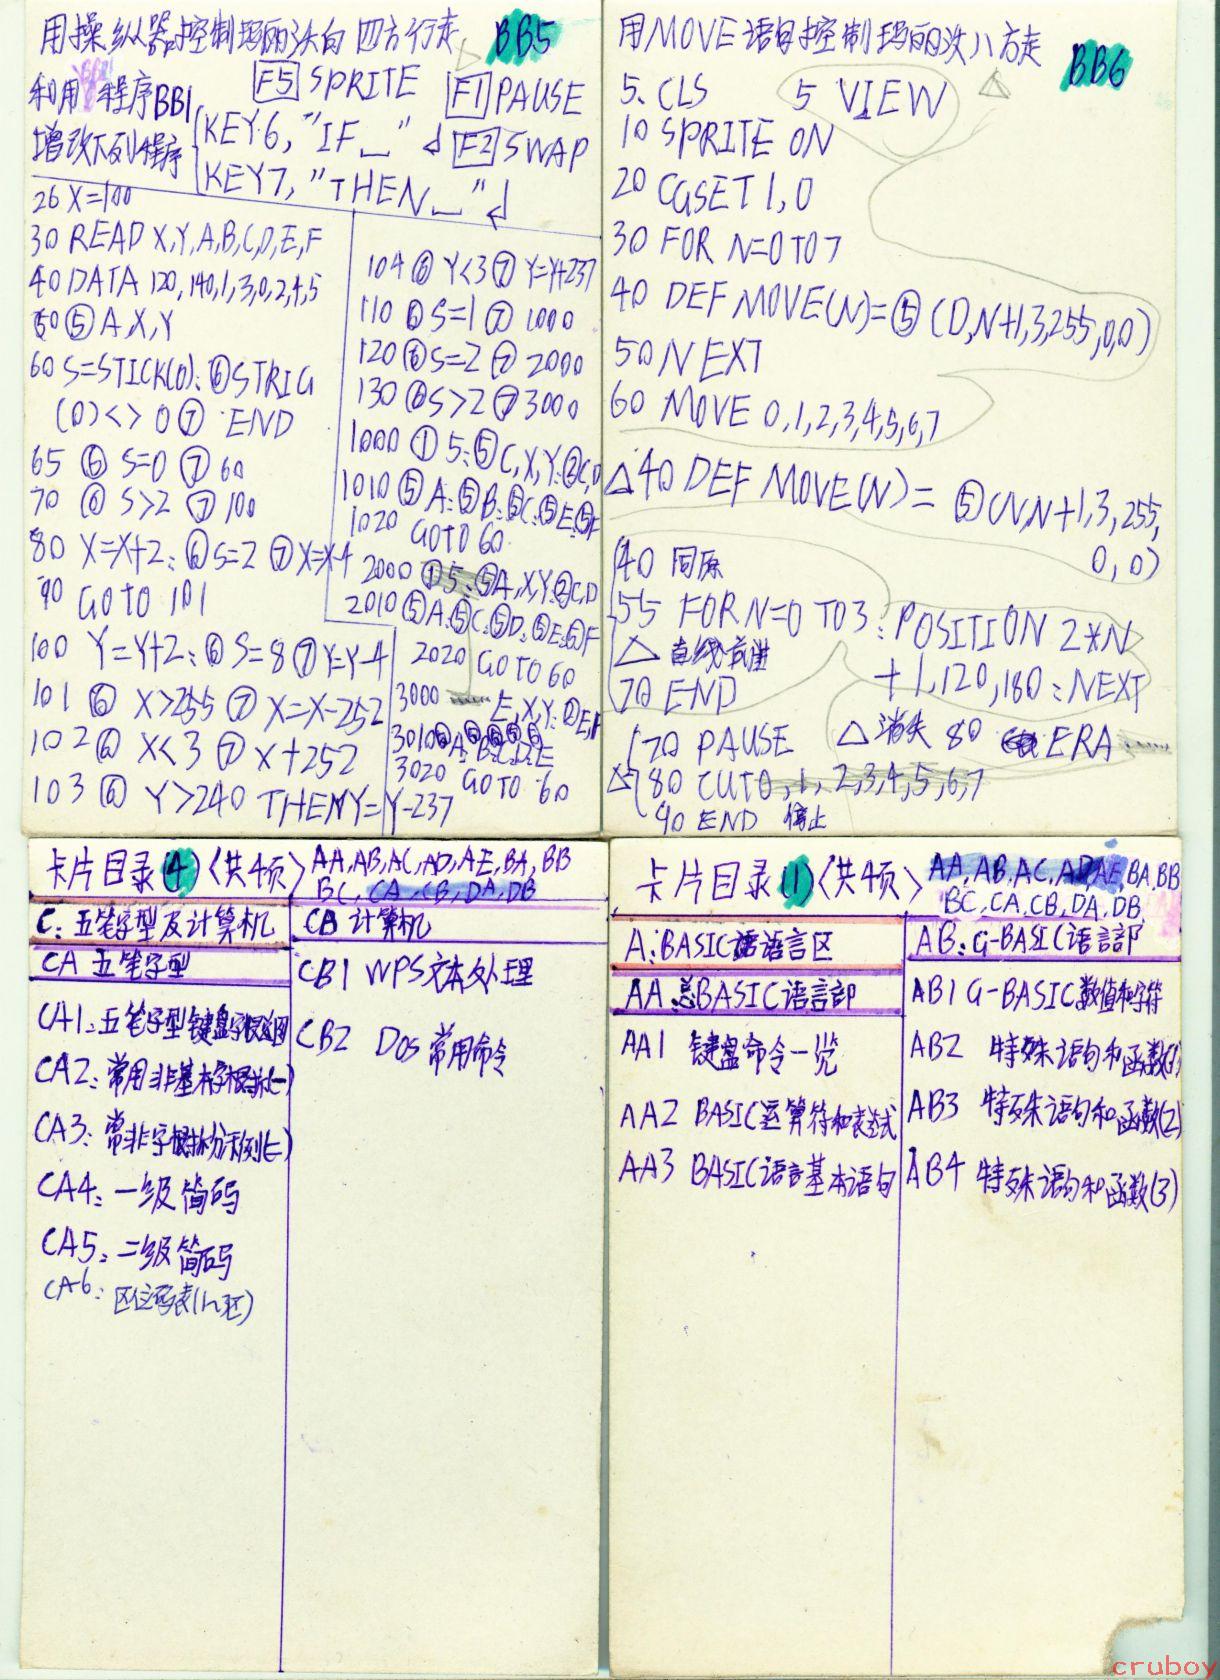 用操纵器控制玛丽沃向四方行走 BB5
利用程序BB1
增改下列程序
F5 SPRITE F1 PAUSE
KEY6,"IF␣" ↲ F2 SWAP
KEY7,"THEN␣" ↲
26 X=100
30 READ X,Y,A,B,C,D,E,F
40 DATA 120,140,1,3,0,2,4,5
50 ⑤ A,X,Y
60 S=STICK(0):⑥STRIG
(0)<>0 ⑦ END
65 ⑥ S=0 ⑦ 60
70 ⑥ S>2 ⑦ 100
80 X=X+2:⑥S=2 ⑦X=X-4
90 GOTO 101
100 Y=Y+2:⑥S=8⑦Y=Y-4
101 ⑥ X>255 ⑦ X=X-252
102 ⑥ X<3 ⑦ X+252
103 ⑥ Y>240 THENY=Y-237
104 ⑥ Y<3 ⑦ Y=Y+237
110 ⑥ S=1 ⑦ 1000
120 ⑥S=2 ⑦ 2000
130 ⑥S>2 ⑦3000
1000 ① 5:⑤C,X,Y:②C,D
1010 ⑤A:⑤B:⑤C:⑤E:⑤F
1020 GOTO 60
2000 ①5:⑤A,X,Y:②C,D
2010 ⑤A:⑤C:⑤D:⑤E:⑤F
2020 GOTO 60
3000 E,X,Y:②E,F
3010 A: B:C:D:E
3020 GOTO 60
用MOVE语句控制玛丽沃八方走 BB6
5. CLS 5 VIEW
10 SPRITE ON
20 CGSET 1,0
30 FOR N=0 TO 7
40 DEF MOVE(N)=⑤(0,N+1,3,255,0,0)
50 NEXT
60 MOVE 0,1,2,3,4,5,6,7
△40 DEF MOVE(N)= ⑤(N,N+1,3,255,
0,0)
40 同原
55 FOR N=0 TO 3:POSITION 2*N
△ 直线前进 +1,120,180:NEXT
70 END
70 PAUSE △消失 80 ERA
△80 CUT0,1,2,3,4,5,6,7
90 END 停止
卡片目录(4)〈共4页〉AA,AB,AC,AD,AE,BA,BB
BC,CA,CB,DA,DB
C:五笔字型及计算机
CA 五笔字型
CA1:五笔字型键盘字根图
CA2:常用非基本字根拆(一)
CA3:常非字根拆分示例(二)
CA4:一级简码
CA5:二级简码
CA6:区位码表(1~区)
CB 计算机
CB1 WPS文本处理
CB2 DOS常用命令
卡片目录(1)〈共4页〉AA,AB,AC,AD,AE,BA,BB
BC,CA,CB,DA,DB
A:BASIC语言区
AA:总BASIC语言部
AA1 键盘命令一览
AA2 BASIC运算符和表达式
AA3 BASIC语言基本语句
AB:G-BASIC语言部
AB1 G-BASIC数值和字符
AB2 特殊语句和函数(1)
AB3 特殊语句和函数(2)
AB4 特殊语句和函数(3)
cruboy